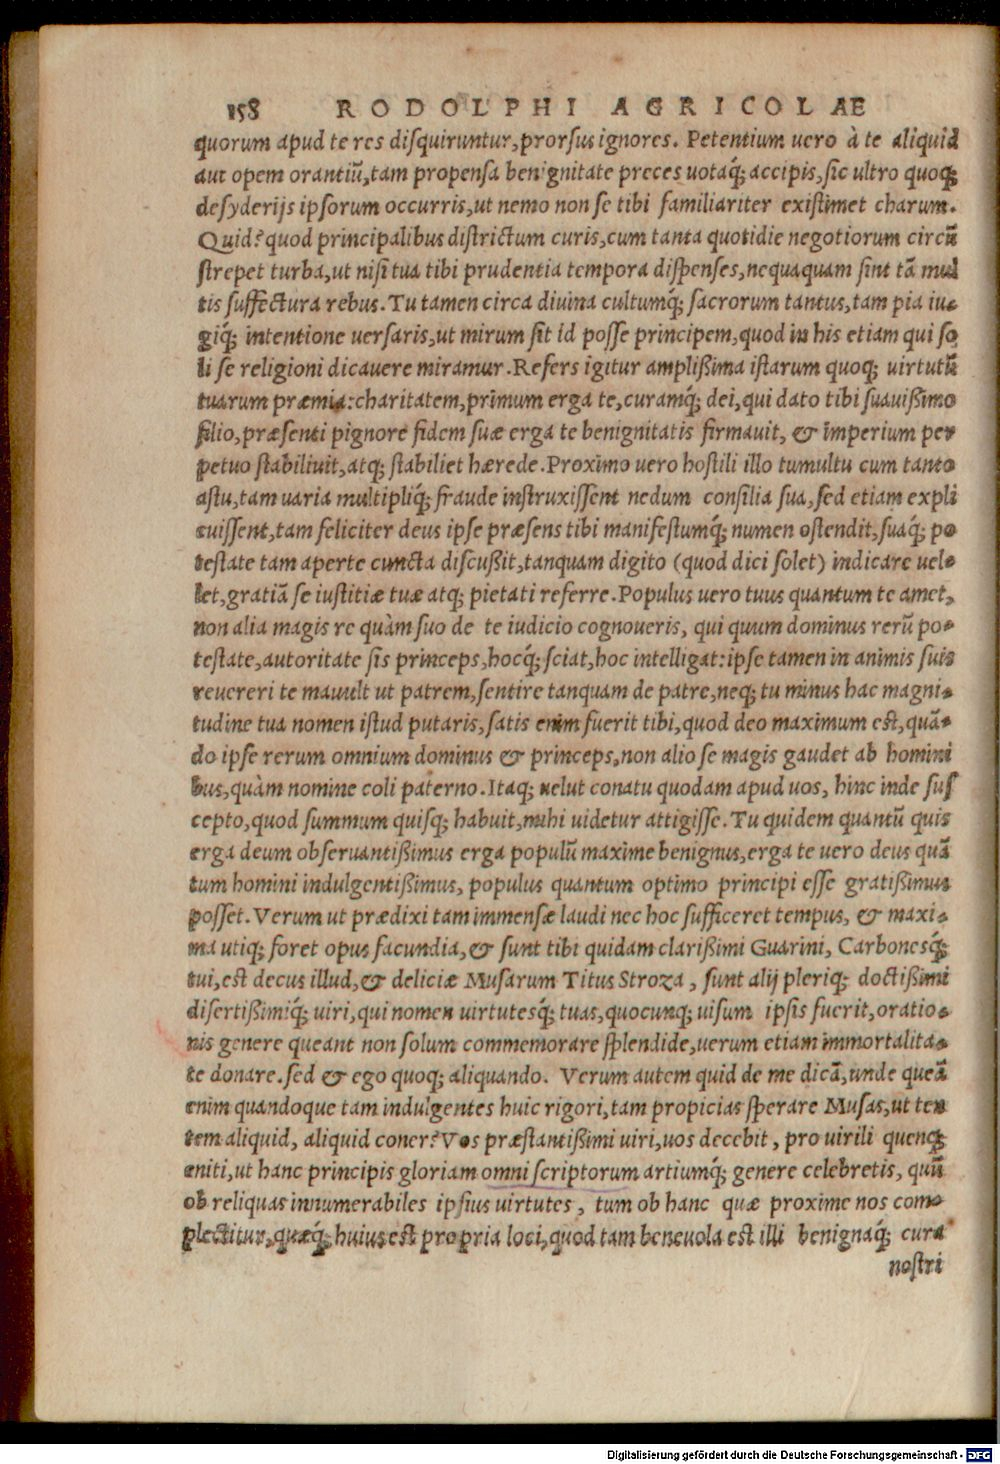 158 RODOLPHI AGRICOLAE
quorum apud te res disquiruntur, prorsus ignores. Petentium uero à te aliquid
aut opem orantiũ, tam propensa benignitate preces uotaq́; accipis, sic ultro quoq;
desyderijs ipsorum occurris, ut nemo non se tibi familiariter existimet charum.
Quid? quod principalibus districtum curis, cum tanta quotidie negotiorum circũ
strepet turba, ut nisi tua tibi prudentia tempora dispenses, nequaquam sint tã mul
tis suffectura rebus. Tu tamen circa diuina cultumq́; sacrorum tantus, tam pia iu-
giq́; intentione uersaris, ut mirum sit id posse principem, quod in his etiam qui so
li se religioni dicauere miramur. Refers igitur amplißima istarum quoq; uirtutũ
tuarum præmia: charitatem, primum erga te, curamq́; dei, qui dato tibi suauißimo
filio, præsenti pignore fidem suæ erga te benignitatis firmauit, & imperium per
petuo stabiliuit, atq; stabiliet hærede. Proximo uero hostili illo tumultu cum tanto
astu, tam uaria multipliq́; fraude instruxissent nedum consilia sua, sed etiam expli
cuissent, tam feliciter deus ipse præsens tibi manifestumq́; numen ostendit, suaq́; po
testate tam aperte cuncta discußit, tanquam digito (quod dici solet) indicare uel-
let, gratiã se iustitiæ tuæ atq; pietati referre. Populus uero tuus quantum te amet,
non alia magis re quàm suo de te iudicio cognoueris, qui quum dominus rerũ po-
testate, autoritate sis princeps, hocq́; sciat, hoc intelligat: ipse tamen in animis suis
reuereri te mauult ut patrem, sentire tanquam de patre, neq; tu minus hac magni-
tudine tua nomen istud putaris, satis enim fuerit tibi, quod deo maximum est, quã-
do ipse rerum omnium dominus & princeps, non alio se magis gaudet ab homini
bus, quàm nomine coli paterno. Itaq; uelut conatu quodam apud uos, hinc inde sus
cepto, quod summum quisq; habuit, mihi uidetur attigisse. Tu quidem quantũ quis
erga deum obseruantißimus erga populũ maxime benignus, erga te uero deus quã
tum homini indulgentißimus, populus quantum optimo principi esse gratißimus
posset. Verum ut prædixi tam immensæ laudi nec hoc sufficeret tempus, & maxi-
ma utiq; foret opus facundia, & sunt tibi quidam clarißimi Guarini, Carbonesq́;
tui, est decus illud, & deliciæ Musarum Titus Stroza, sunt alij pleriq; doctißimi
disertißimiq́; uiri, qui nomen uirtutesq́; tuas, quocunq; uisum ipsis fuerit, oratio-
nis genere queant non solum commemorare splendide, uerum etiam immortalita-
te donare. sed & ego quoq; aliquando. Verum autem quid de me dicã, unde queã
enim quandoque tam indulgentes huic rigori, tam propicias sperare Musas, ut ten
tem aliquid, aliquid coner? Vos præstantißimi uiri, uos decebit, pro uirili quenq;
eniti, ut hanc principis gloriam omni scriptorum artiumq́; genere celebretis, quũ
ob reliquas innumerabiles ipsius uirtutes, tum ob hanc quæ proxime nos com-
plectitur, quæq́; huius est propria loci, quod tam beneuola est illi benignaq́; cura
nostri
Digitalisierung gefördert durch die Deutsche Forschungsgemeinschaft - DFG